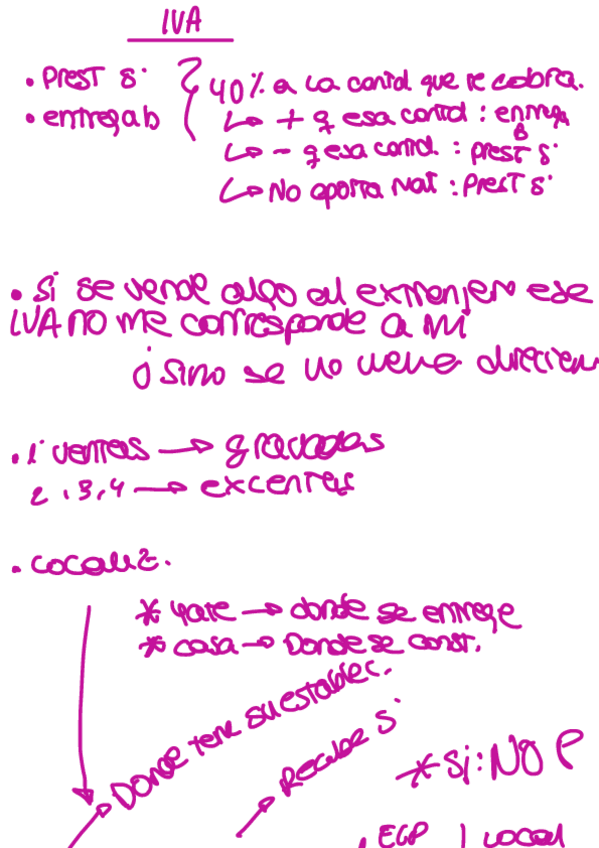 IVA
• Prest s.
• entrega b
40% a la cantd que se cobra.
↳ + q esa cantd : entrega B
↳ - q esa cantd : prest s.
↳ No aporta mat : Prest s.
• Si se vende algo al extranjero ese
IVA no me corresponde a mi
¡ sino se lo lleva direcien
• 1ª ventas → gravadas
2, 3, 4 → excentas
• Localiz.
* Yate → donde se entrege
* casa → Donde se const.
→ Donde tene su establec.
→ Recibe s.
* Si: NO P
EGP | Local